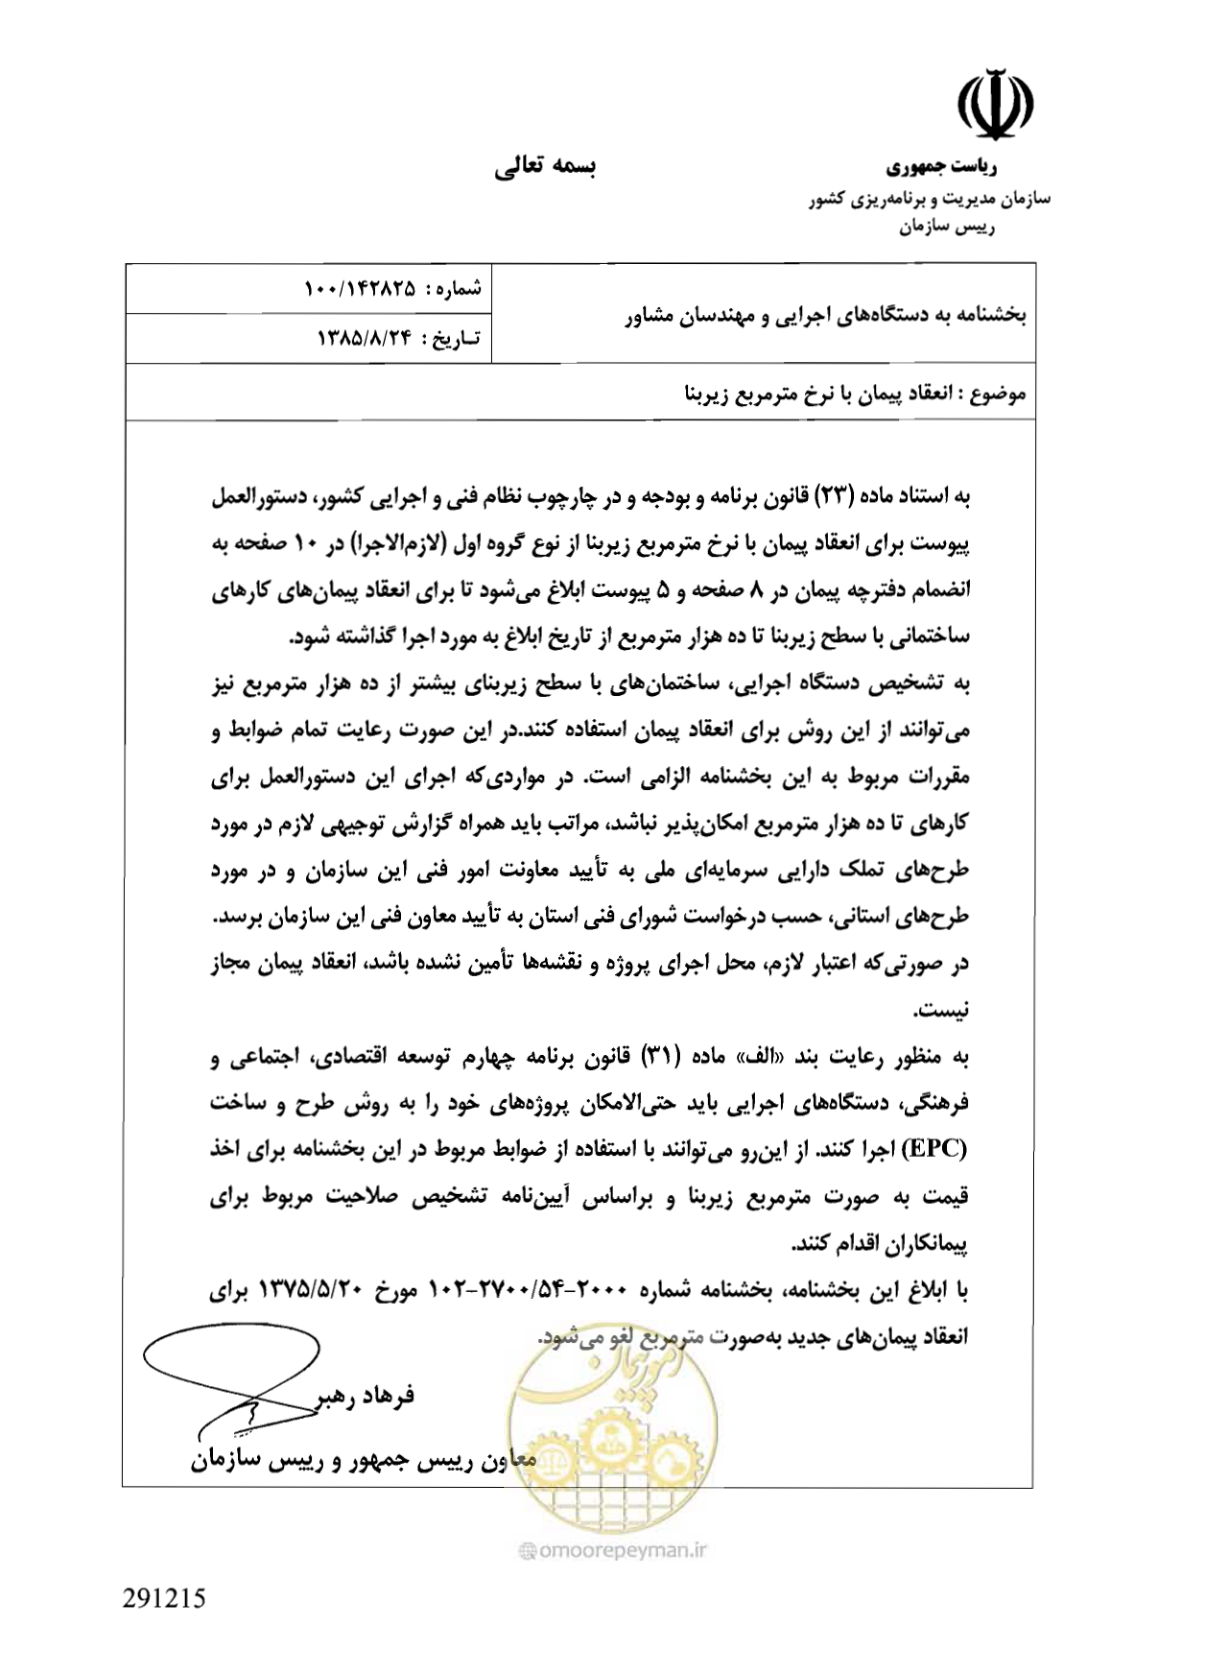 ریاست جمهوری
سازمان مدیریت و برنامه‌ریزی کشور
رییس سازمان
بسمه تعالی
بخشنامه به دستگاه‌های اجرایی و مهندسان مشاور
شماره : ۱۰۰/۱۴۲۸۲۵
تـاریخ : ۱۳۸۵/۸/۲۴
موضوع : انعقاد پیمان با نرخ مترمربع زیربنا
به استناد ماده (۲۳) قانون برنامه و بودجه و در چارچوب نظام فنی و اجرایی کشور، دستورالعمل
پیوست برای انعقاد پیمان با نرخ مترمربع زیربنا از نوع گروه اول (لازم‌الاجرا) در ۱۰ صفحه به
انضمام دفترچه پیمان در ۸ صفحه و ۵ پیوست ابلاغ می‌شود تا برای انعقاد پیمان‌های کارهای
ساختمانی با سطح زیربنا تا ده هزار مترمربع از تاریخ ابلاغ به مورد اجرا گذاشته شود.
به تشخیص دستگاه اجرایی، ساختمان‌های با سطح زیربنای بیشتر از ده هزار مترمربع نیز
می‌توانند از این روش برای انعقاد پیمان استفاده کنند.در این صورت رعایت تمام ضوابط و
مقررات مربوط به این بخشنامه الزامی است. در مواردی‌که اجرای این دستورالعمل برای
کارهای تا ده هزار مترمربع امکان‌پذیر نباشد، مراتب باید همراه گزارش توجیهی لازم در مورد
طرح‌های تملک دارایی سرمایه‌ای ملی به تأیید معاونت امور فنی این سازمان و در مورد
طرح‌های استانی، حسب درخواست شورای فنی استان به تأیید معاون فنی این سازمان برسد.
در صورتی‌که اعتبار لازم، محل اجرای پروژه و نقشه‌ها تأمین نشده باشد، انعقاد پیمان مجاز
نیست.
به منظور رعایت بند «الف» ماده (۳۱) قانون برنامه چهارم توسعه اقتصادی، اجتماعی و
فرهنگی، دستگاه‌های اجرایی باید حتی‌الامکان پروژه‌های خود را به روش طرح و ساخت
(EPC) اجرا کنند. از این‌رو می‌توانند با استفاده از ضوابط مربوط در این بخشنامه برای اخذ
قیمت به صورت مترمربع زیربنا و براساس آیین‌نامه تشخیص صلاحیت مربوط برای
پیمانکاران اقدام کنند.
با ابلاغ این بخشنامه، بخشنامه شماره ۲۰۰۰-۱۰۲-۲۷۰۰/۵۴ مورخ ۱۳۷۵/۵/۲۰ برای
انعقاد پیمان‌های جدید به‌صورت مترمربع لغو می‌شود.
امور پیمان
فرهاد رهبر
معاون رییس جمهور و رییس سازمان
omoorepeyman.ir
291215